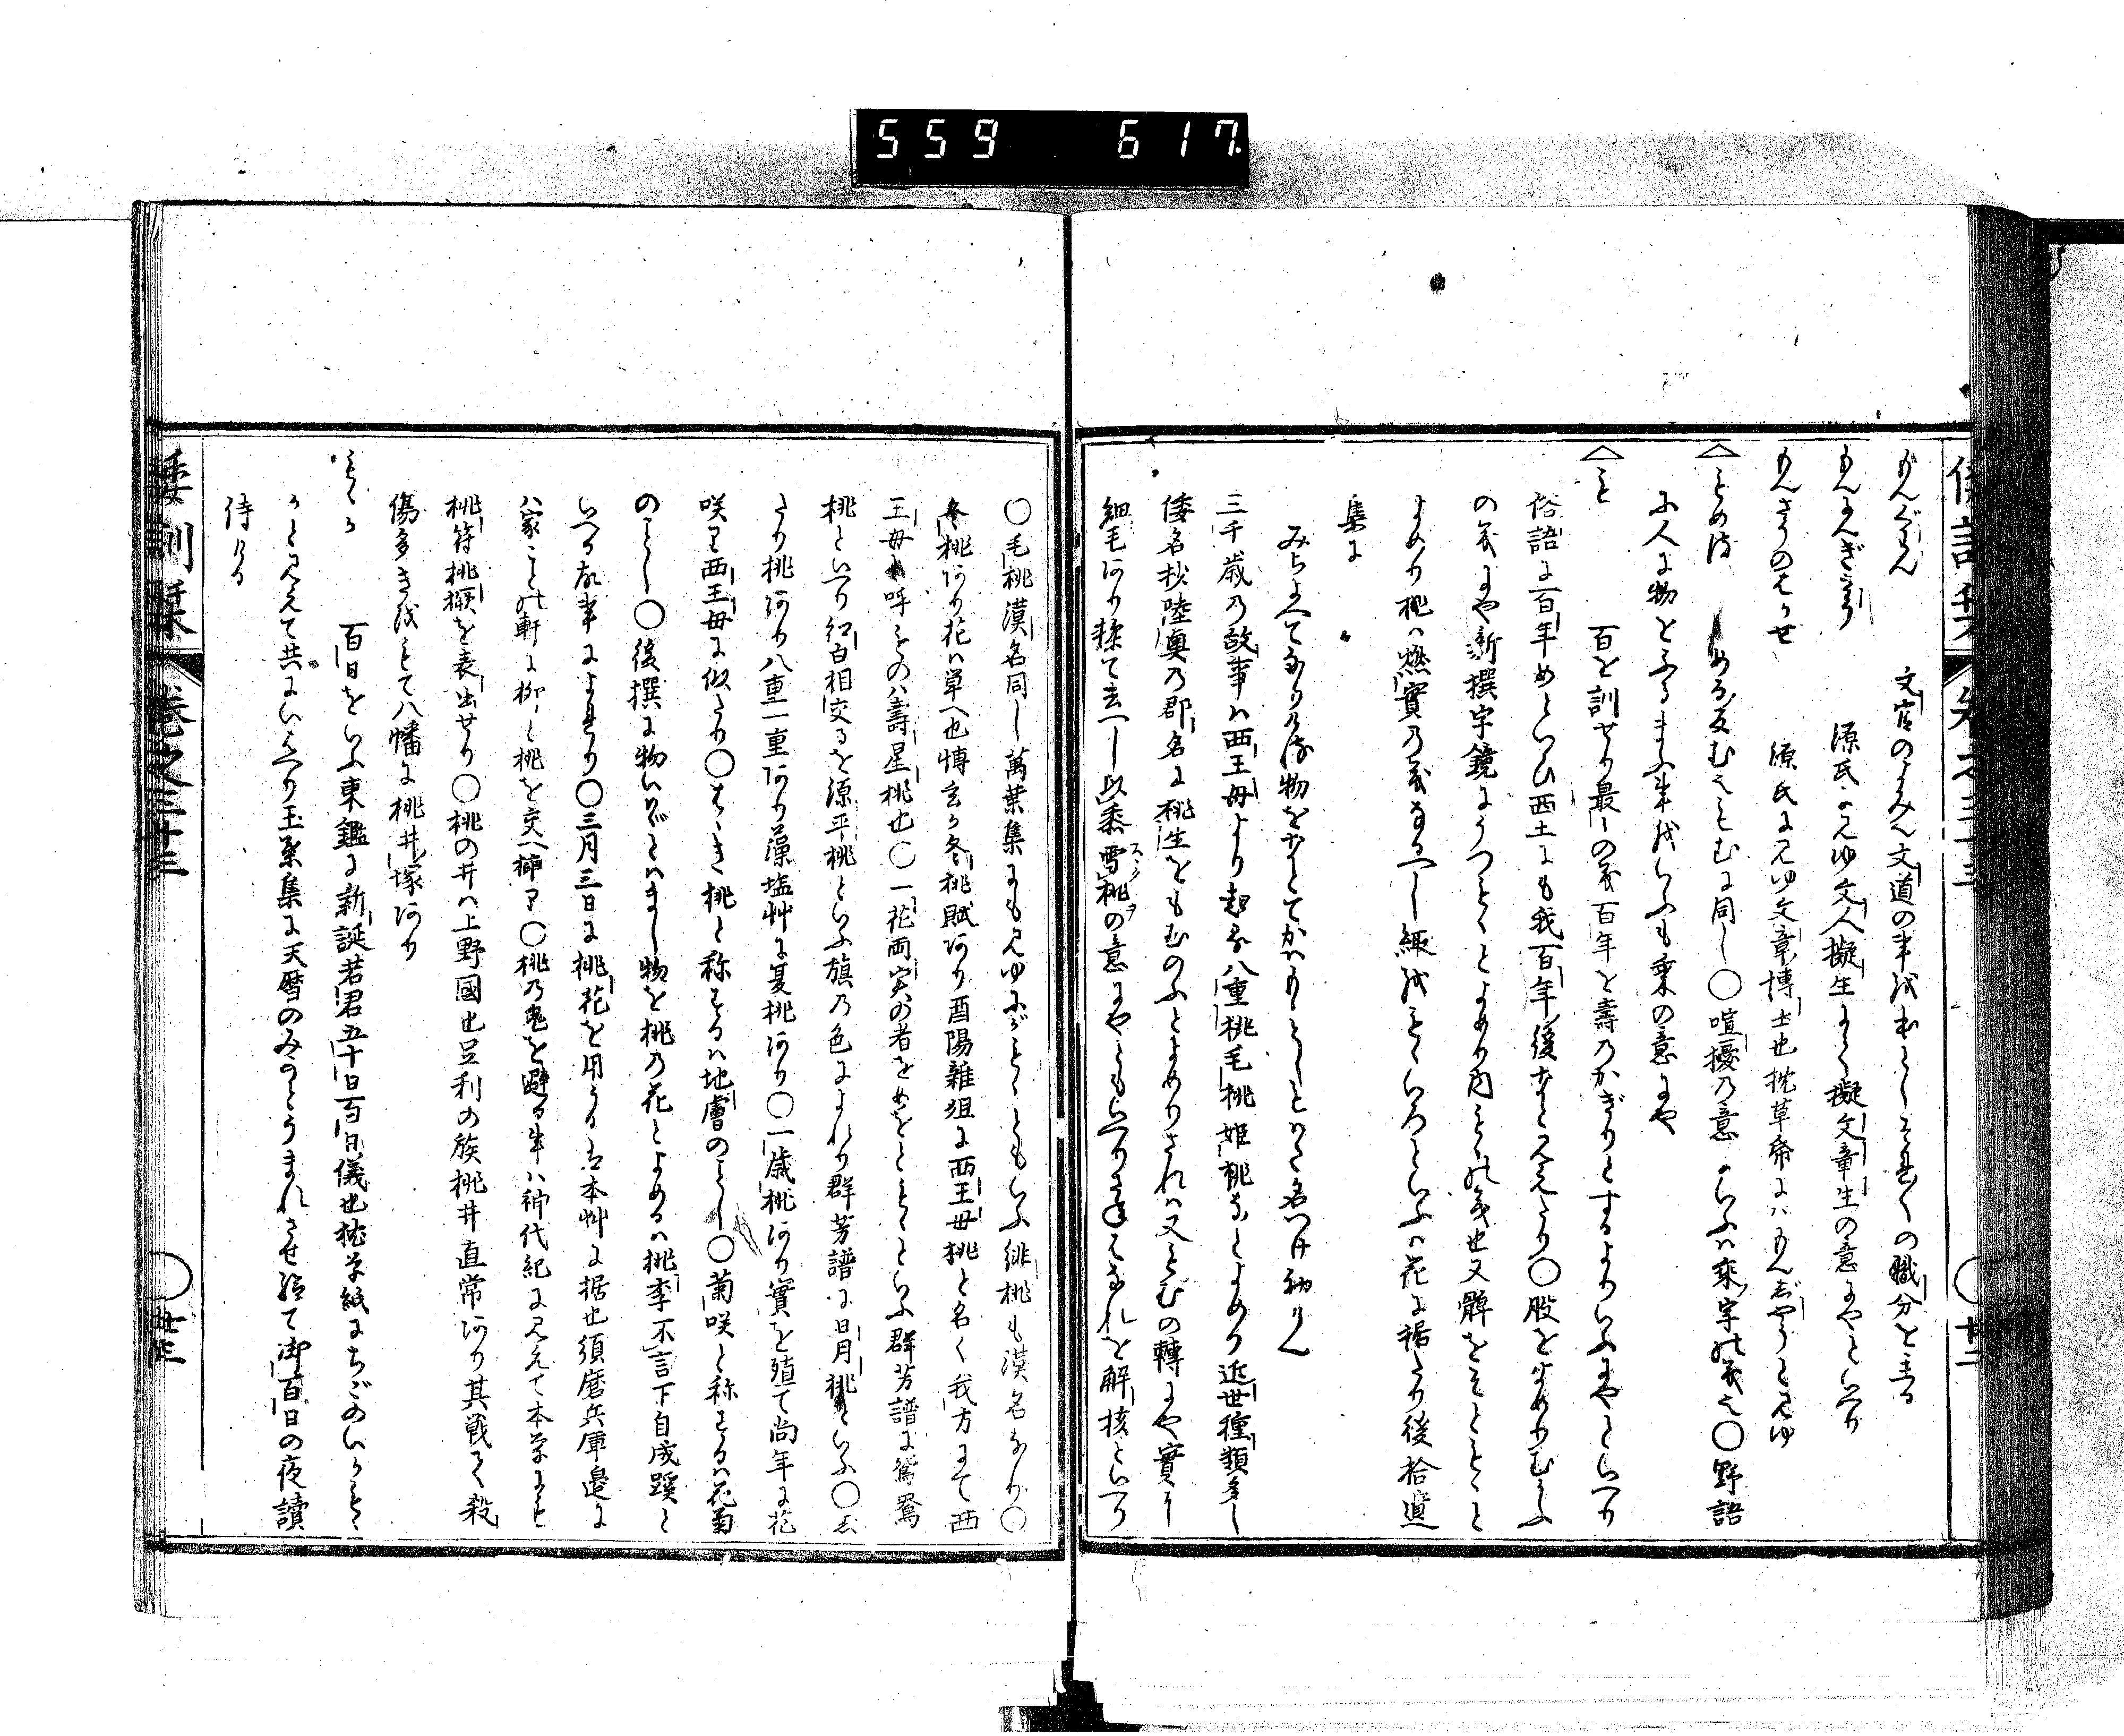 559 617
もんぐわん 文官のよみ也文道の事を出しそれ〳〵の職分を主る
もんにんぎさう 源氏に見ゆ文人擬生にて擬文章生の意にやといへり
もんざうのはかせ 源氏に見ゆ文章博士也枕草帋にハもんじやうと見ゆ
もめる める反む也もむに同し〇喧擾の意にいふハ乗字の義也〇野語
に人に物とふるまふ事をいふも乗の意にや
もゝ 百を訓せり最の義百年を壽のかぎりとするよりいふにやといへり
俗語に百年めといひ西土にも我百年後なと見えたり〇股をよめりむかふ
の義にや新撰字鏡にうつもゝとよめり内もゝの義也又髀をそともゝと
よめり桃ハ燃實の義なるへし緅をもゝいろといふハ花に据たり後拾遺
集に
みちよへてなりける物をなとてかハもゝとしもはた名つけ初けん
三千歳の故事ハ西王母より起る八重桃毛桃姫桃なとよめり近世種類多し
倭名抄陸奥の郡名に桃生をもむのふとよめりされハ又もむの轉にや實に
細毛あり採て去へし以黍雪桃の意にやともいへりさねはなれを解核といへり
〇毛桃漢名同し萬葉集にも見ゆにがもゝともいふ緋桃も漢名なり〇
冬桃あり花ハ単へ也傅玄か冬桃賦あり酉陽雑俎に西王母桃と名く我方にて西
王母と呼ものハ壽星桃也〇一花両実の者をめをともゝといふ群芳譜に鴛鴦
桃といへり紅白相交るを源平桃といふ旗の色によれり群芳譜に日月桃といふ〇
たり桃あり八重一重あり藻塩艸に夏桃あり〇一歳桃あり實を殖て尚年に花
咲り西王母に似たり〇はゝき桃と称するハ地膚のことし〇菊咲と称するハ花菊
のことし〇後撰に物いはずとハまし物を桃の花とよめるハ桃李不言下自成蹊と
いへる故事によれり〇三月三日に桃花を用うるは本艸に据也須磨兵庫邉に
ハ家ことの軒に柳と桃を交へ挿す〇桃の鬼を避る事ハ神代紀に見えて本草にも
桃符桃橛を表出せり〇桃の井ハ上野國也足利の族桃井直常あり其戦て殺
傷多きをもて八幡に桃井塚あり
もゝか 百日をいふ東鑑に新誕若君五十日百日儀也枕草紙にちごのいかもゝ
かと見えて共にいへり玉葉集に天暦のみこのうまれさせ給て御百日の夜讀
侍ける
倭訓栞 巻之三十三 〇 廿三